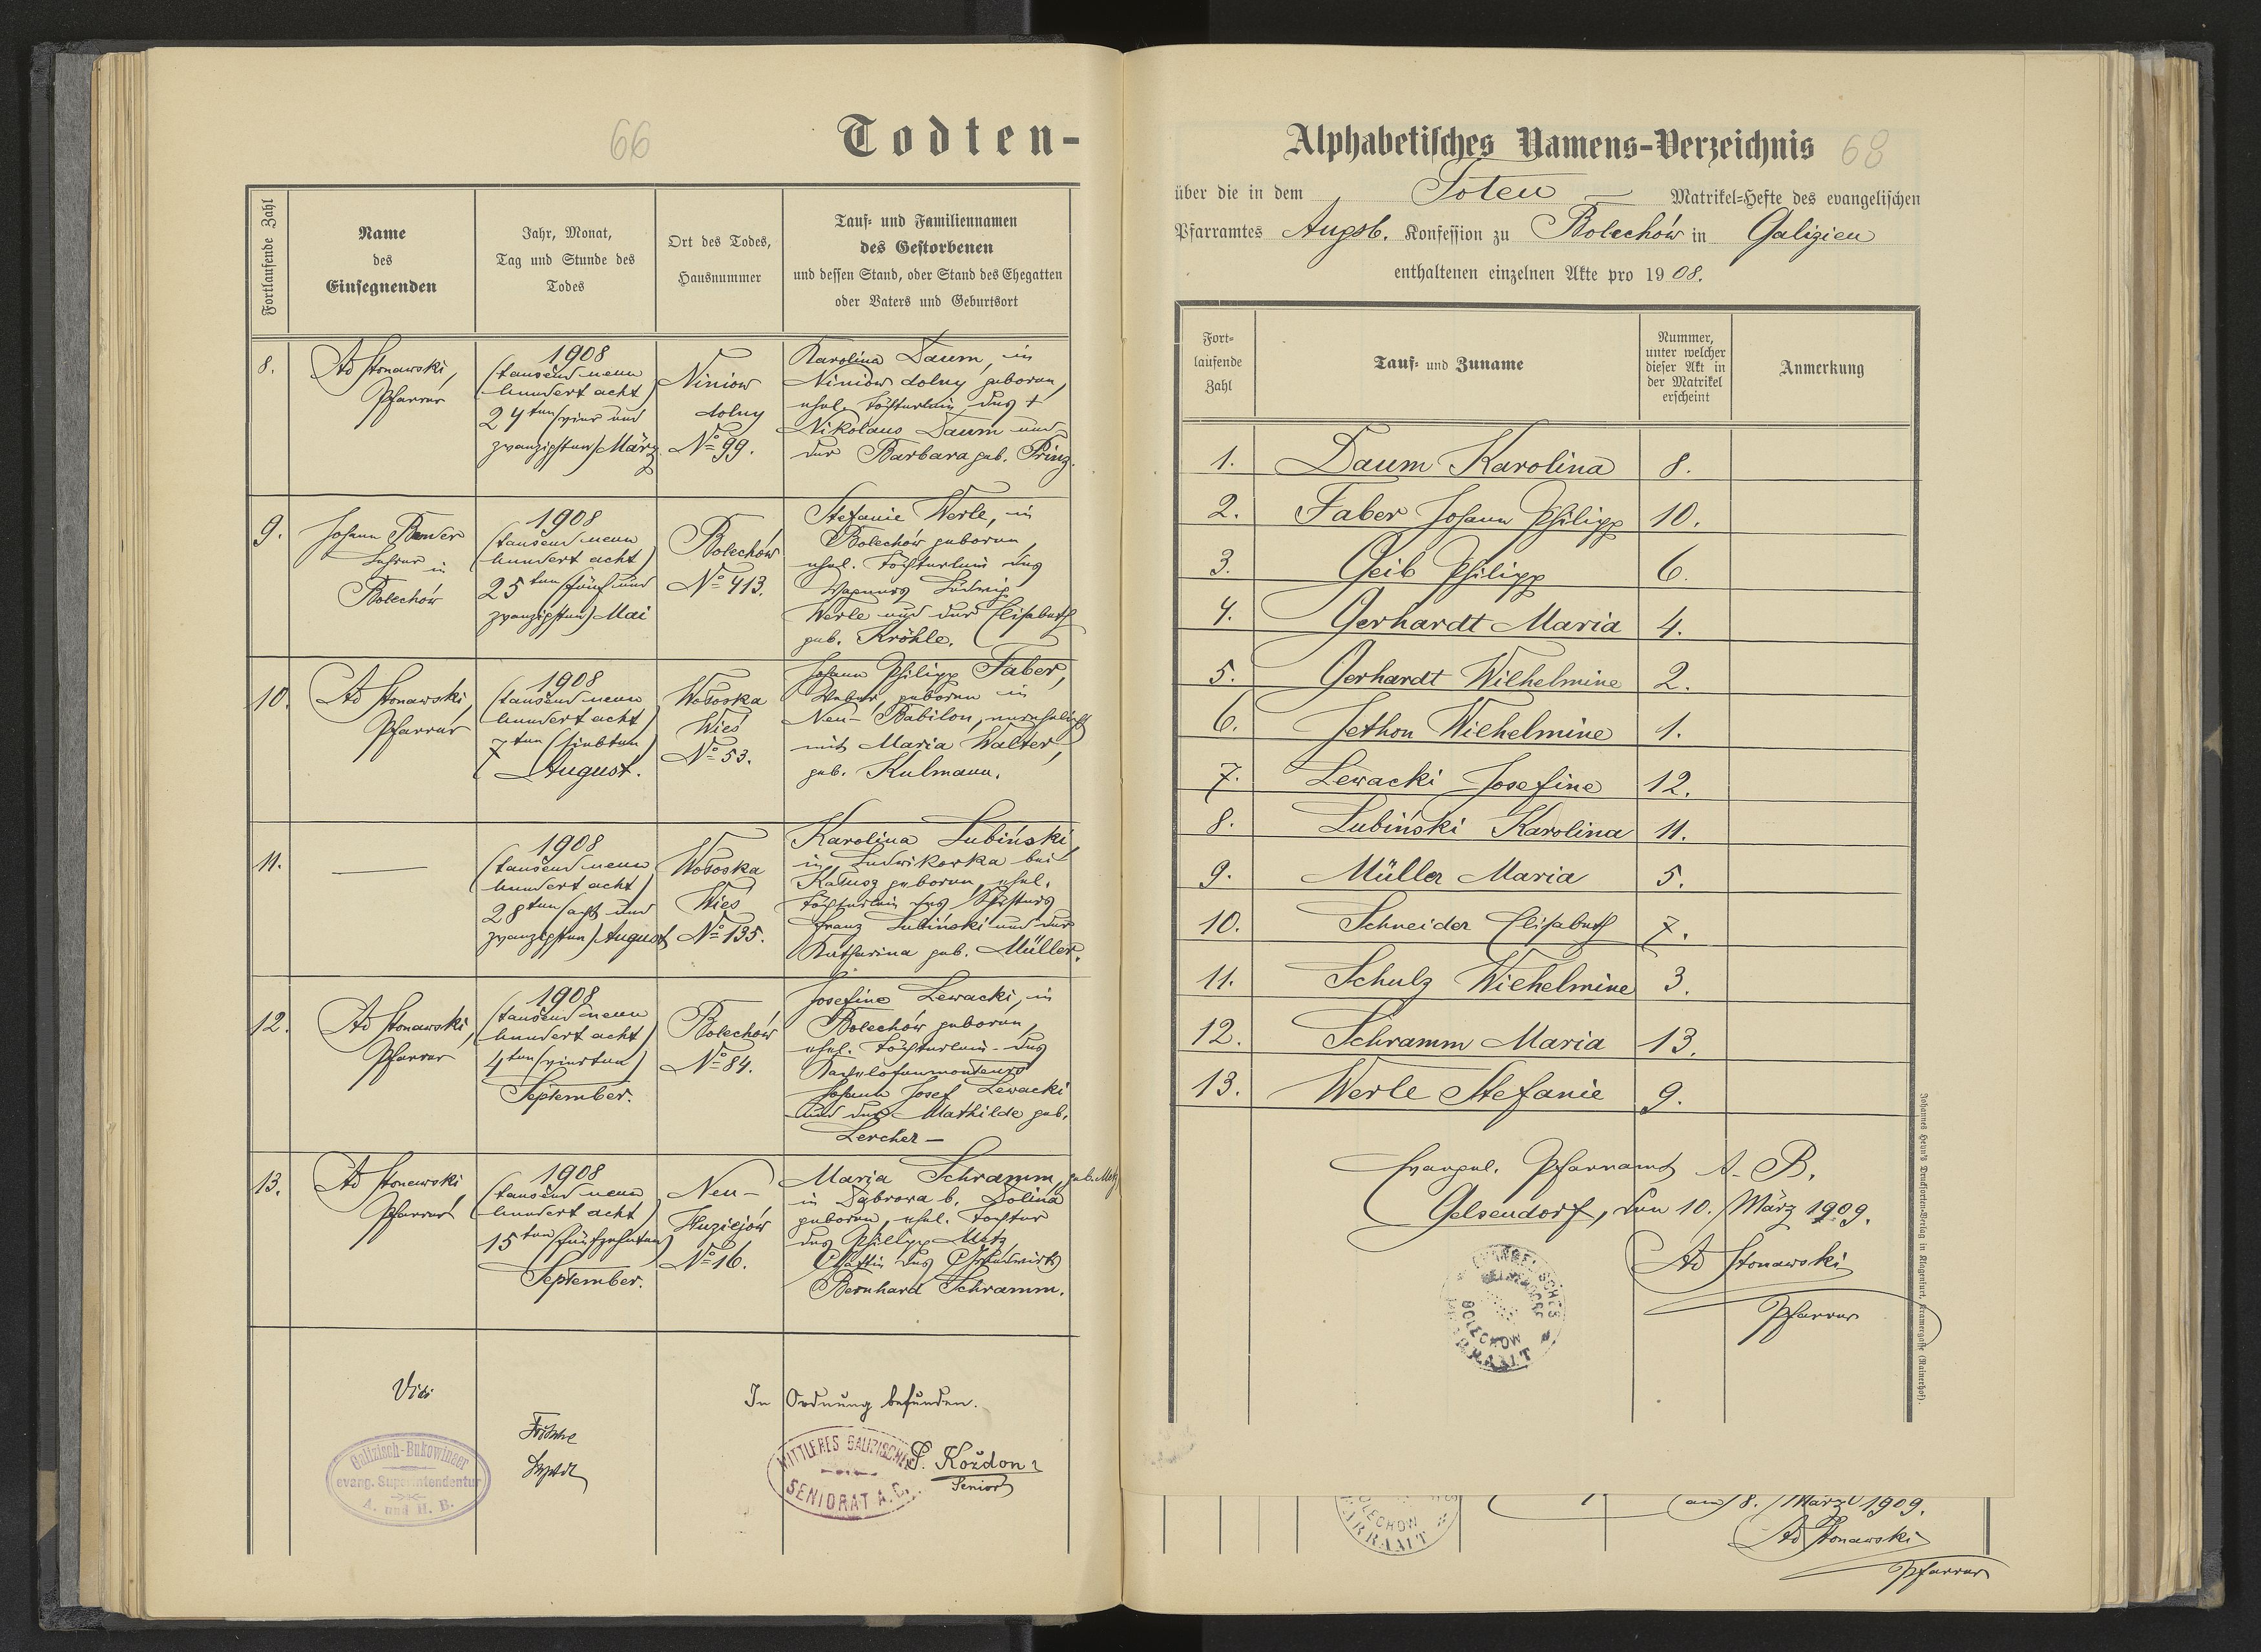 66
Todten-
Fortlaufende Zahl
Name
des
Einsegnenden
Jahr, Monat,
Tag und Stunde des
Todes
Ort des Todes,
Hausnummer
Tauf- und Familiennamen
des Gestorbenen
und dessen Stand, oder Stand des Ehegatten
oder Vaters und Geburtsort
8.
Ad Stonawski,
Pfarrer
1908
(tausend neun
hundert acht)
24ten (vier und
zwanzigsten) März
Niniow
dolny
No 99.
Karolina Daum, in
Niniów dolny geboren,
ehel. Töchterlein des †
Nikolaus Daum und
der Barbara geb. Prinz.
9.
Johann Bender
Lehrer in
Bolechów
1908
(tausend neun
hundert acht)
25ten (fünf und
zwanzigsten) Mai
Bolechów
No 413.
Stefanie Werle, in
Bolechów geboren,
ehel. Töchterlein des
Wagners Ludwig
Werle und der Elisabeth
geb. Kröhle.
10.
Ad Stonawski,
Pfarrer
1908
(tausend neun
hundert acht)
7ten (siebten)
August.
Wołoska
Wieś
No 53.
Johann Philipp Faber,
Weber, geboren in
Neu-Babilon, verehelicht
mit Maria Walter,
geb. Kulmann.
11.
—
1908
(tausend neun
hundert acht)
28ten (acht und
zwanzigsten) August
Wołoska
Wieś
No 135.
Karolina Lubiński,
in Ludwikowka bei
Kałusz geboren, ehel.
Töchterlein des
Franz Lubiński und der
Katharina geb. Müller.
12.
Ad Stonawski,
Pfarrer
1908
(tausend neun
hundert acht)
4ten (vierten)
September.
Bolechów
No 84.
Josefine Lewacki, in
Bolechów geboren,
ehel. Töchterlein des
Kachelofenmonteurs
Johann Josef Lewacki
und der Mathilde geb.
Lercher —
13.
Ad Stonawski
Pfarrer
1908
(tausend neun
hundert acht)
15ten (fünfzehnten)
September.
Neu-
Huziejów
No 16.
Maria Schramm, geb. Metz
in Dąbrowa b. Dolina
geboren, ehel. Tochter
des Philipp Metz,
Gattin des Grundwirts
Bernhard Schramm.
Vidi
In Ordnung befunden.
Galizisch-Bukowinaer
evang. Superintendentur
A. und H. B.
MITTLERES GALIZISCHES
SENIORAT A.C.
Kożdon
Senior
Alphabetisches Namens-Verzeichnis
68
über die in dem Toten Matrikel-Hefte des evangelischen
Pfarramtes Augsb. Konfession zu Bolechów in Galizien
enthaltenen einzelnen Akte pro 1908.
Fort-
laufende
Zahl
Tauf- und Zuname
Nummer,
unter welcher
dieser Akt in
der Matrikel
erscheint
Anmerkung
1. Daum Karolina 8.
2. Faber Johann Philipp 10.
3. Geib Philipp 6.
4. Gerhardt Maria 4.
5. Gerhardt Wilhelmine 2.
6. Jethon Wilhelmine 1.
7. Lewacki Josefine 12.
8. Lubiński Karolina 11.
9. Müller Maria 5.
10. Schneider Elisabeth 7.
11. Schulz Wilhelmine 3.
12. Schramm Maria 13.
13. Werle Stefanie 9.
Evangel. Pfarramt A. B.
Gelsendorf, den 10. März 1909.
Ad Stonawski
Pfarrer
EVANGELISCHES
GELSENDORF
BOLECHOW
PFARRAMT
Johannes Heyn's Drucksorten-Verlag in Klagenfurt, Kramergasse (Rainerhof).
BOLECHOW
PFARRAMT
am 8. März 1909.
Ad Stonawski
Pfarrer